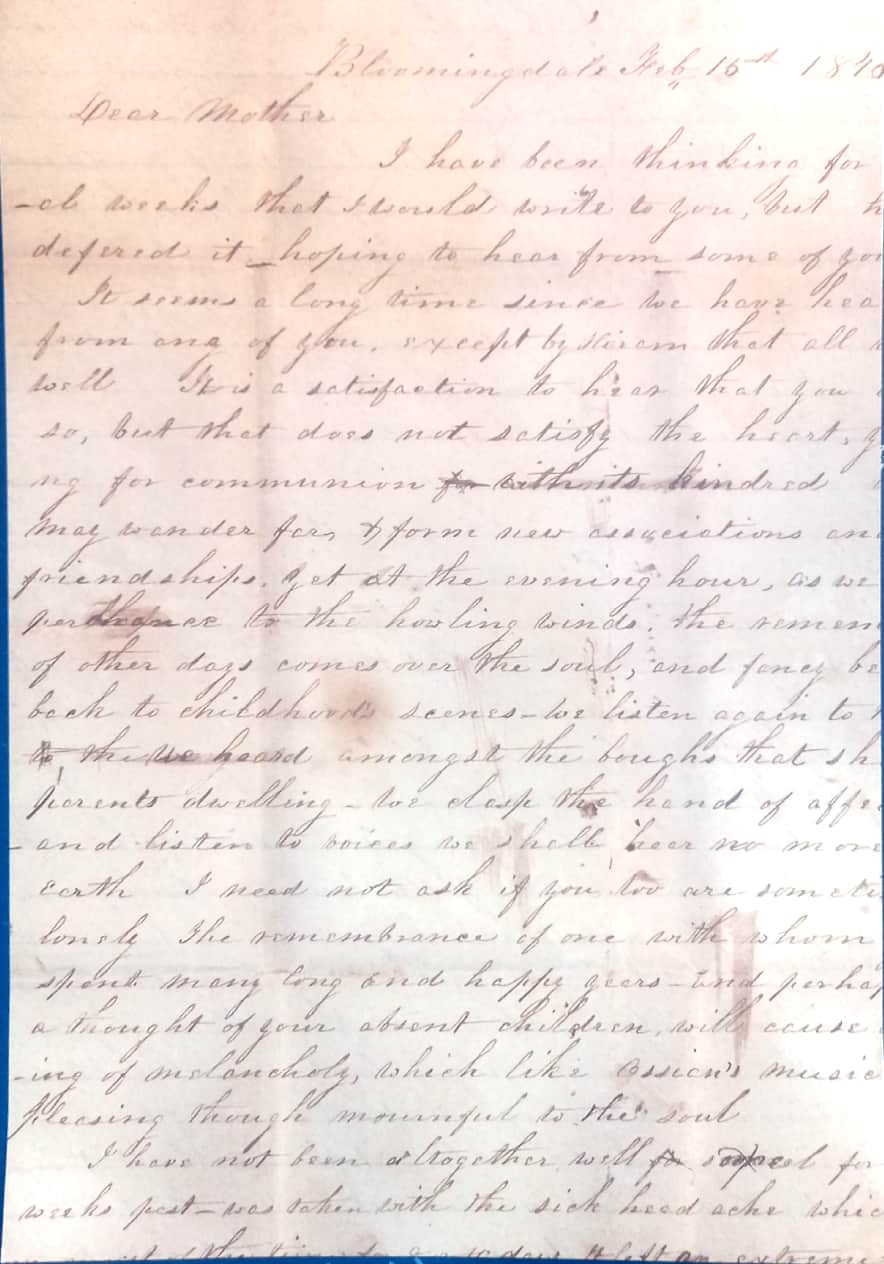 Bloomingdale Feb 15th 184
Dear Mother
I have been thinking for
-al weeks that I would write to you, but h
defered it - hoping to hear from some of you
It seems a long time since we have hea
from any of you, except by Hiram that all
well It is a satisfaction to hear that you
so, but that does not satisfy the heart, y
ng for communion for with its kindred
may wander far, & form new associations and
friendships, yet at the evening hour, as we
perchance to the howling winds, the remem
of other days comes over the soul, and fancy be
back to childhood's scenes - We listen again to
to the we heard amongst the boughs that sh
parents dwelling - We clasp the hand of affe
- and listen to voices we shall hear no more
Earth I need not ask if you too are someti
lonely The remembrance of one with whom
spent many long and happy years - and perhap
a thought of your absent children, will cause
-ing of melancholy, which like Ossian's music
pleasing though mournful to the soul
I have not been altogether well for for
weeks past - was taken with the sick head ache whic
of the time for days It left an extreme